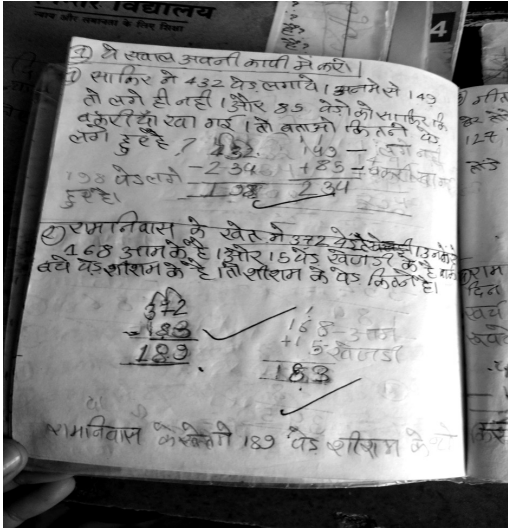 विद्यालय
न्याय और समानता के लिए शिक्षा
4
① ये सवाल अपनी कापी में करो।
① साकिर ने 432 पेड़ लगाये। उनमें से 149
तो लगे ही नहीं। और 85 पेड़ो को साकिर कि
बकरीयाँ खा गई। तो बताओ कितने पेड़
लगे हुए है?
432 149 - लगे नही
-234 +85 -
198 234
198 पेड़ लगे
हुए है।
② रामनिवास के खेत में 372 पेड़ है। उनमें से
168 आम के है। और 15 पेड़ खेजड़ी के है बाकी
बचे पेड़ शीशम के है। तो शीशम के पेड़ कितने है।
372
-183
189
168-आम
+15-खेजड़ी
183
रामनिवास के खेत में 189 पेड़ शीशम के
127